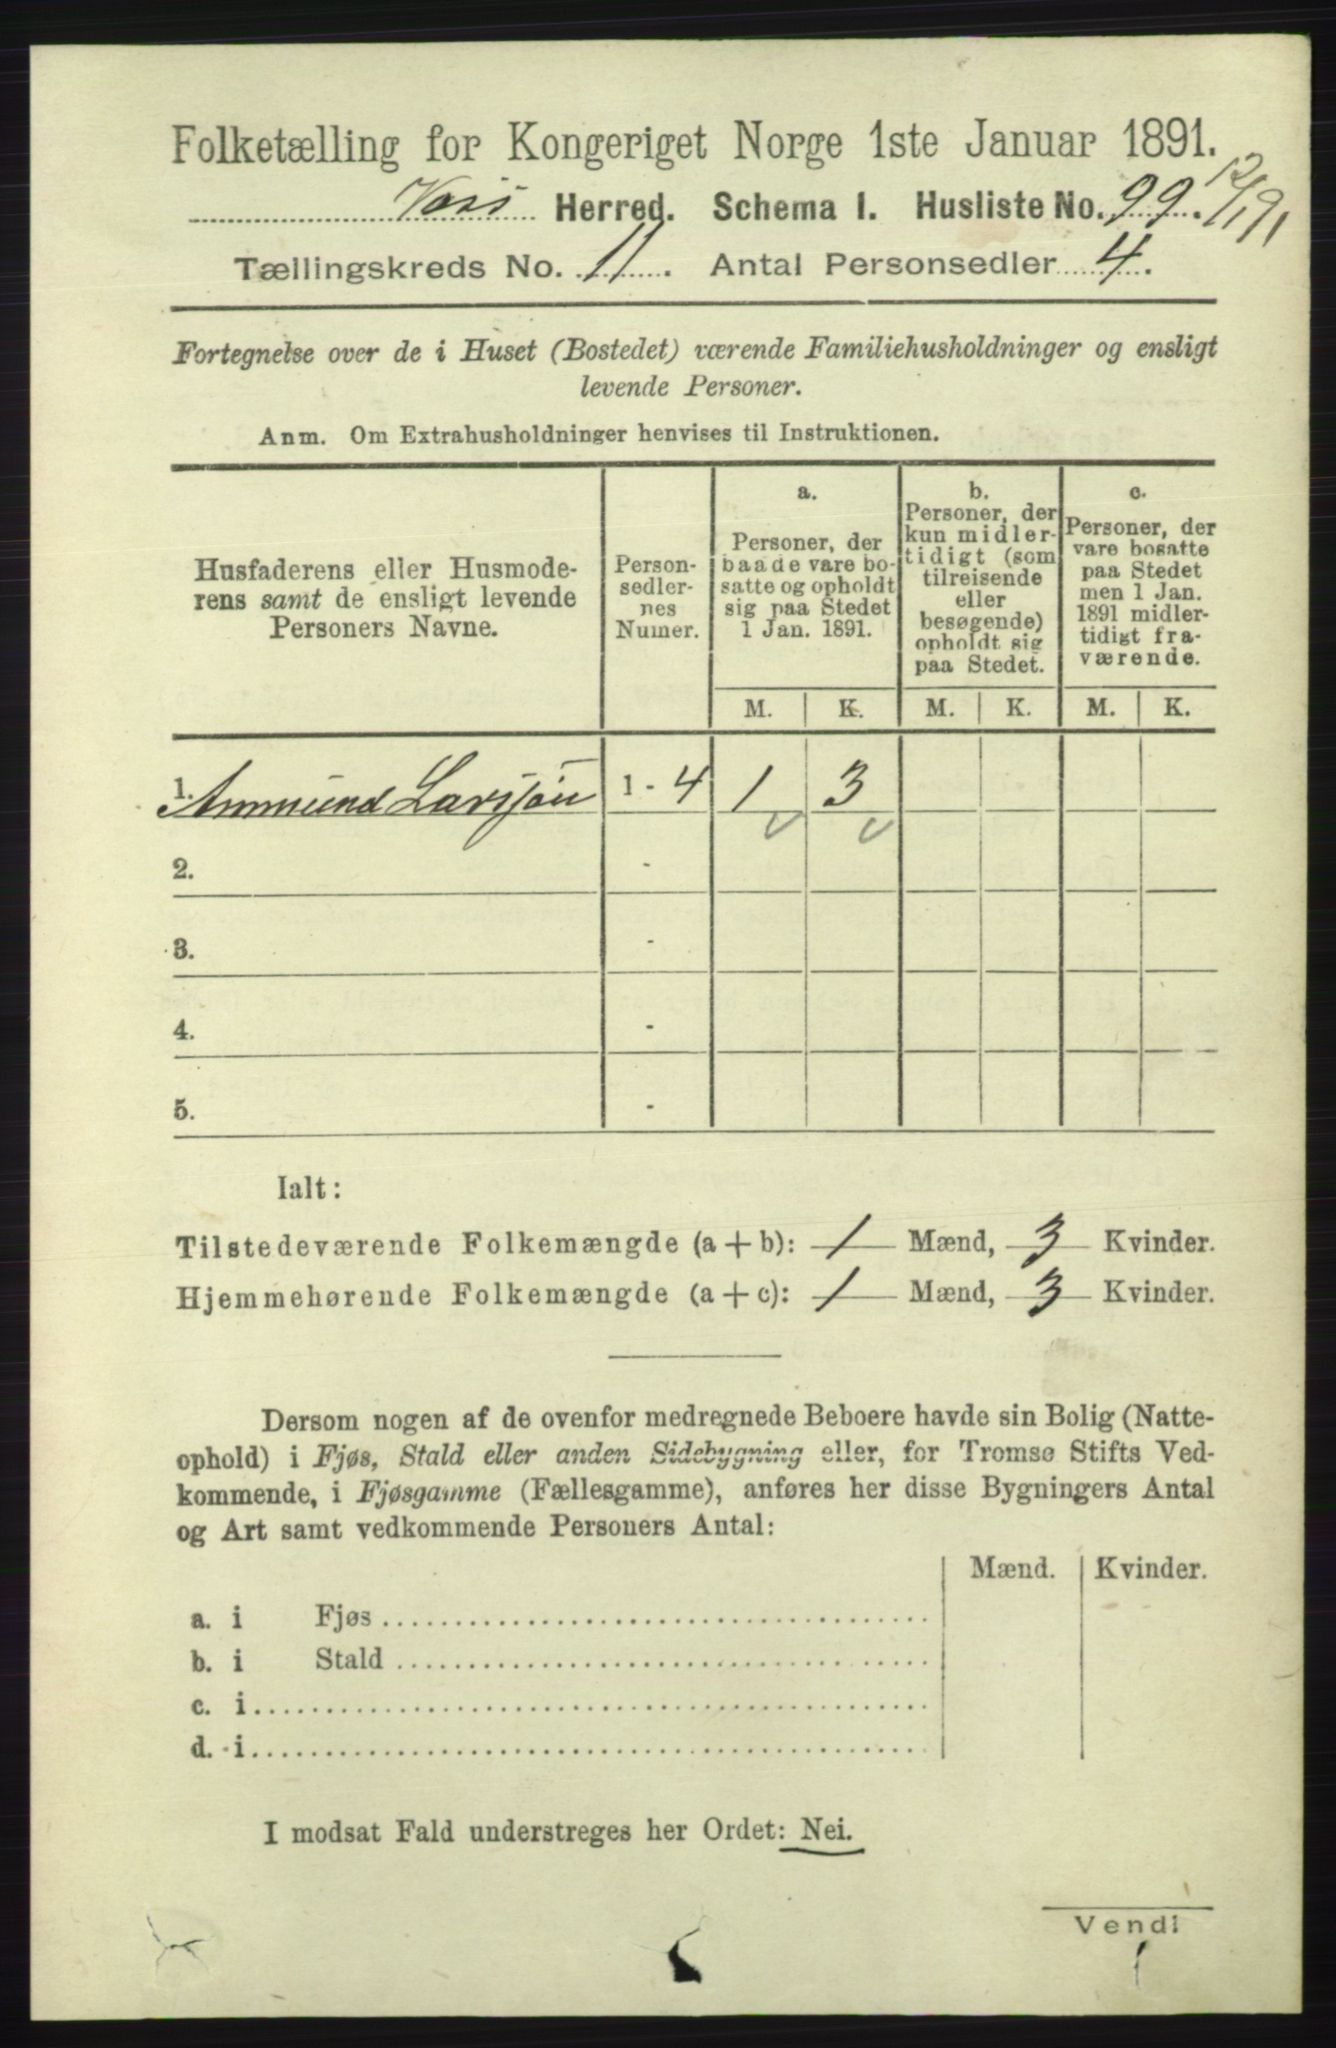 Folketælling for Kongeriget Norge 1ste Januar 1891.
Voss Herred. Schema I. Husliste No. 99. 12/1 91
Tællingskreds No. 11. Antal Personsedler 4.
Fortegnelse over de i Huset (Bostedet) værende Familiehusholdninger og ensligt
levende Personer.
Anm. Om Extrahusholdninger henvises til Instruktionen.
Husfaderens eller Husmode-
rens samt de ensligt levende
Personers Navne.
Person-
sedler-
nes
Numer.
a.
Personer, der
baade vare bo-
satte og opholdt
sig paa Stedet
1 Jan. 1891.
b.
Personer, der
kun midler-
tidigt (som
tilreisende
eller
besøgende)
opholdt sig
paa Stedet.
c.
Personer, der
vare bosatte
paa Stedet
men 1 Jan.
1891 midler-
tidigt fra-
værende.
M. K. M. K. M. K.
1. Ammund Larsjön 1 - 4 1 3
2. -
3. -
4. -
5. -
Ialt:
Tilstedeværende Folkemængde (a + b): 1 Mænd, 3 Kvinder.
Hjemmehørende Folkemængde (a + c): 1 Mænd, 3 Kvinder.
Dersom nogen af de ovenfor medregnede Beboere havde sin Bolig (Natte-
ophold) i Fjøs, Stald eller anden Sidebygning eller, for Tromsø Stifts Ved-
kommende, i Fjøsgamme (Fællesgamme), anføres her disse Bygningers Antal
og Art samt vedkommende Personers Antal:
Mænd. Kvinder.
a. i Fjøs
b. i Stald
c. i
d. i
I modsat Fald understreges her Ordet: Nei.
Vend!